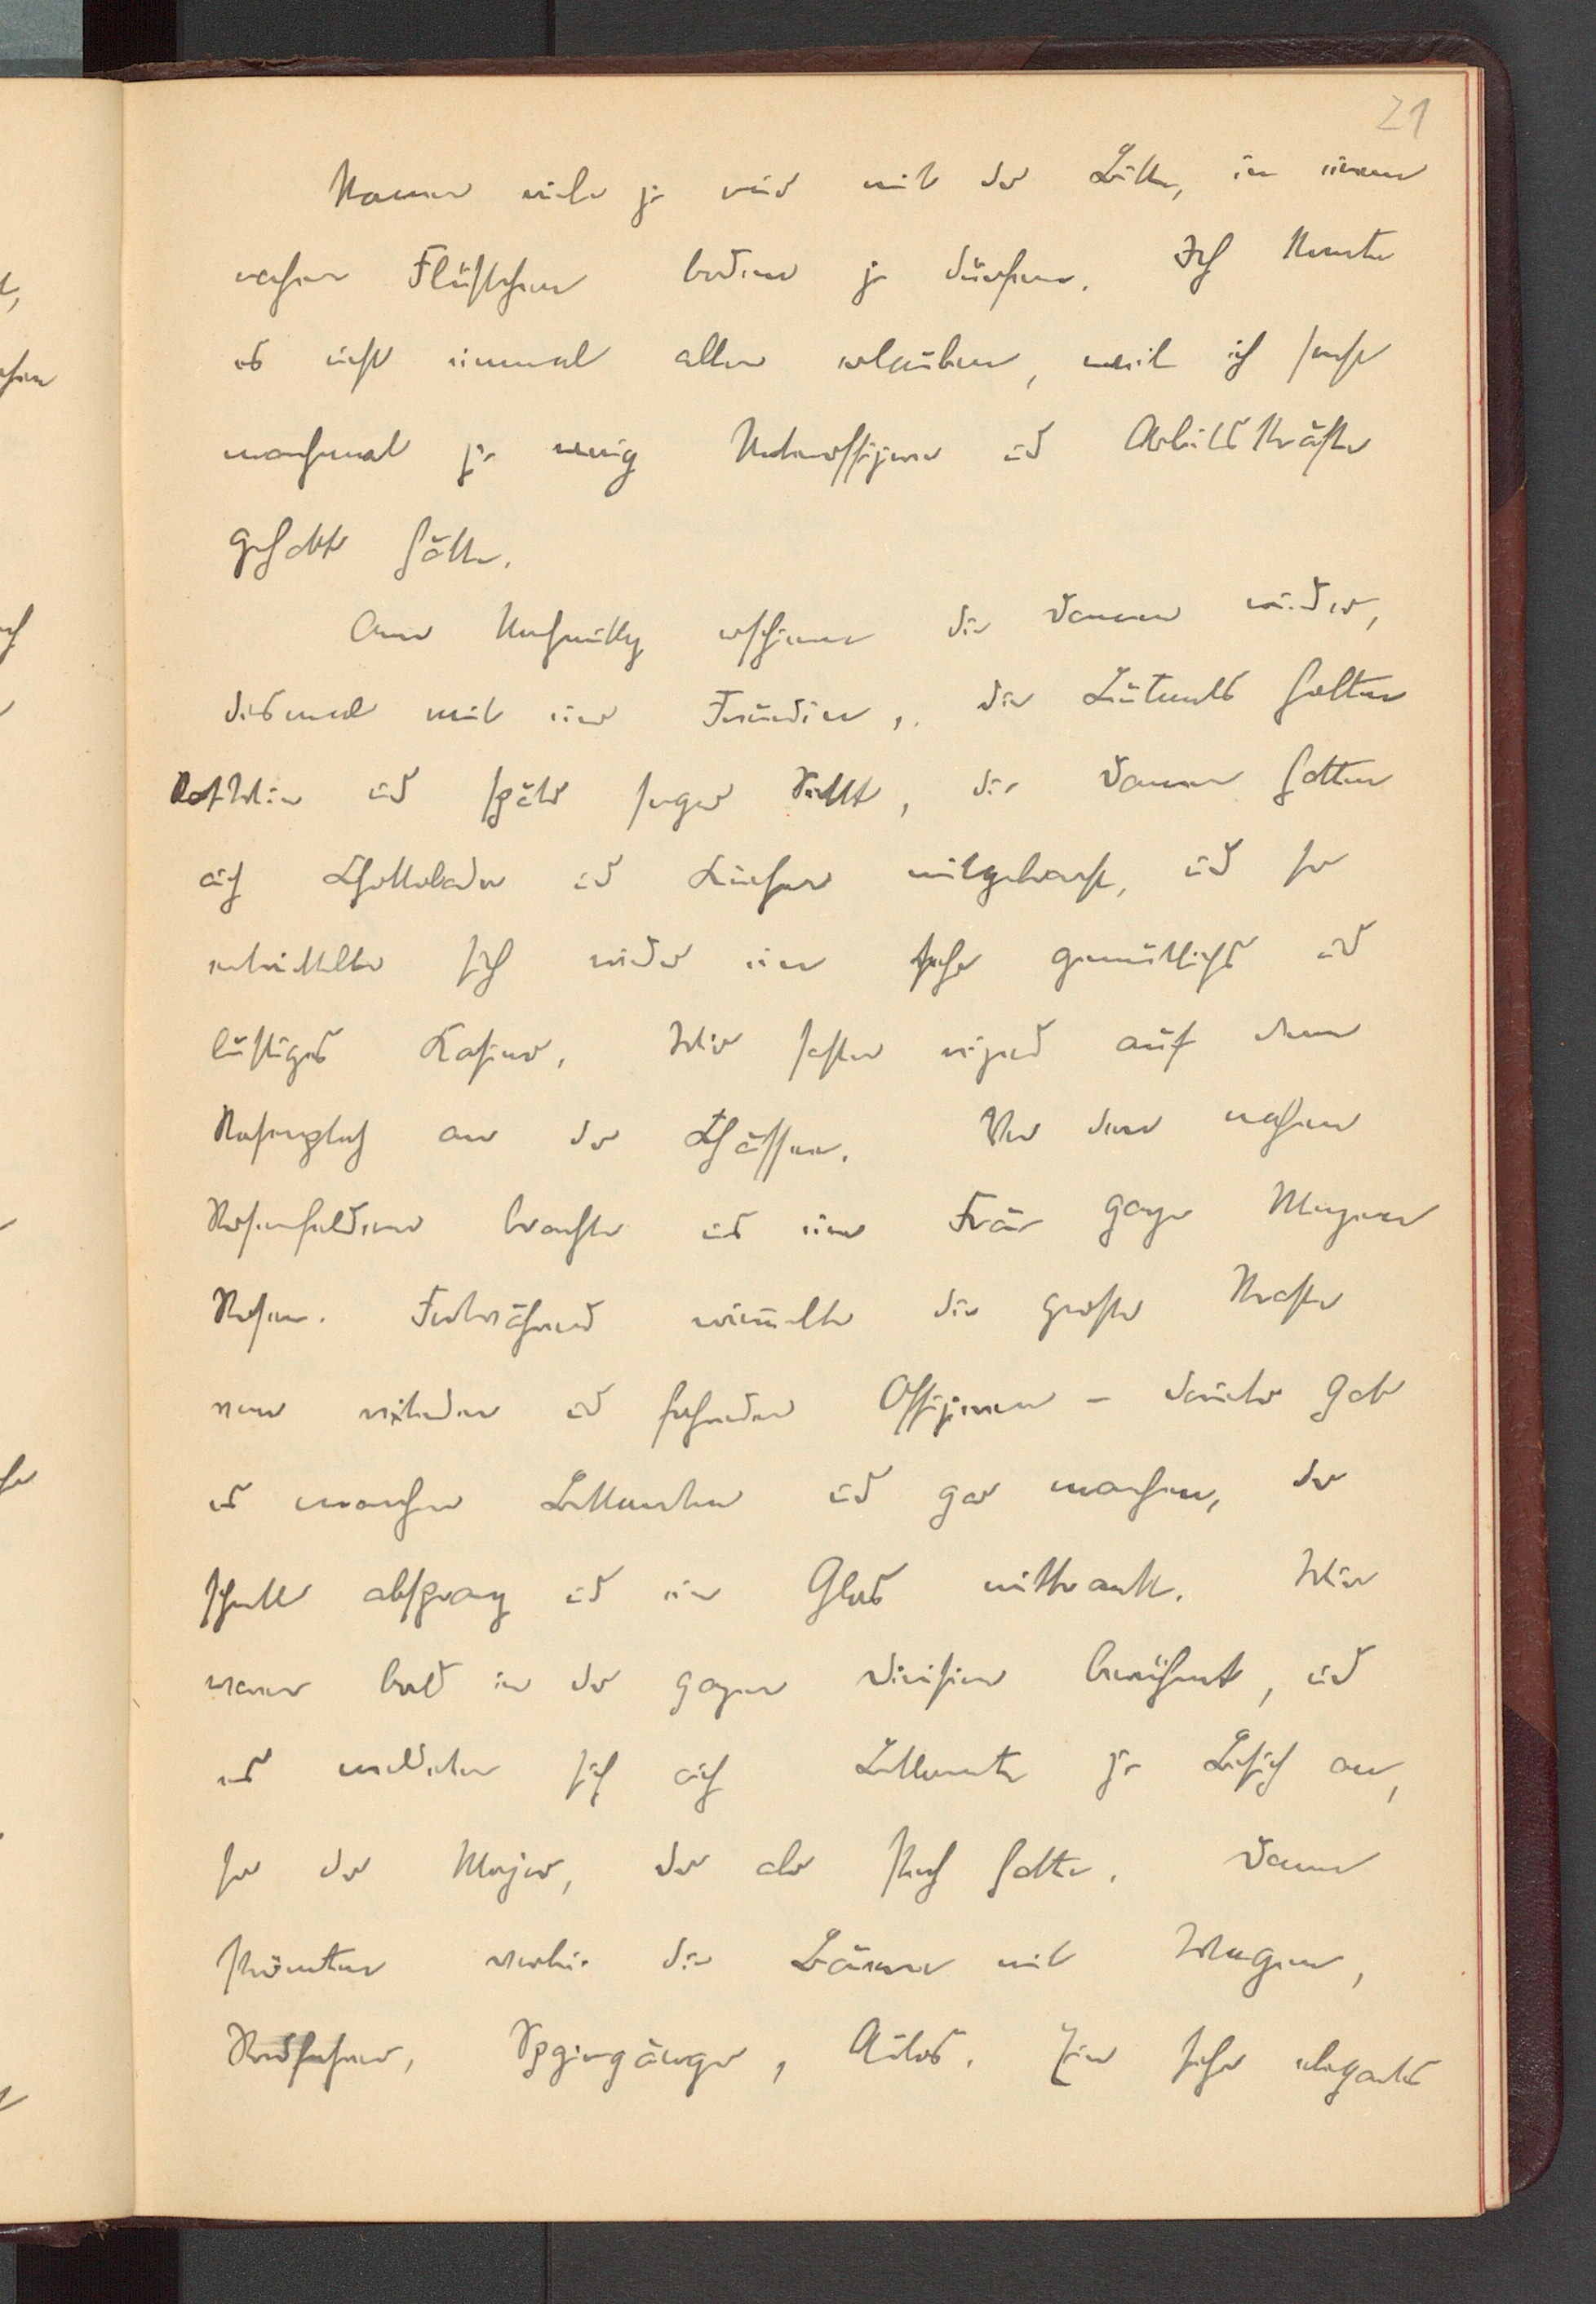 21
kamen viele zu mir mit der Bitte, in einem
nahen Flüsschen baden zu dürfen. Ich konnte
es nicht einmal allen erlauben, weil ich sonst
manchmal zu wenig Unteroffiziere und Arbeitskräfte
gehabt hätte.
Am Nachmittag erschienen die Damen wieder,
diesmal mit einer Freundin, die Leutnants hatten
Rotwein und später sogar Sekt, die Damen hatten
auch Schokolade und Kuchen mitgebracht, und so
entwickelte sich wieder ein sehr gemütliches und
lustiges Kasino. Wir saßen auf dem
Rasenplatz an der Chaussee. Von den nahen
Rosenfeldern brachte uns eine Frau ganze Mengen
Rosen. Fortwährend wimmelte die große Straße
von reitenden und fahrenden Offizieren - darunter gab
es manchen Bekannten und gar manchen, der
schnell absprang und ein Glas mittrank. Wir
waren bald in der ganzen Division berühmt, und
es meldeten sich auch Bekannte zu Besuch an,
so der Major, der als hatte. Dann
strömten vorbei die Bauern mit Wagen,
Radfahrer, Spaziergänger, Autos. Ein sehr elegantes